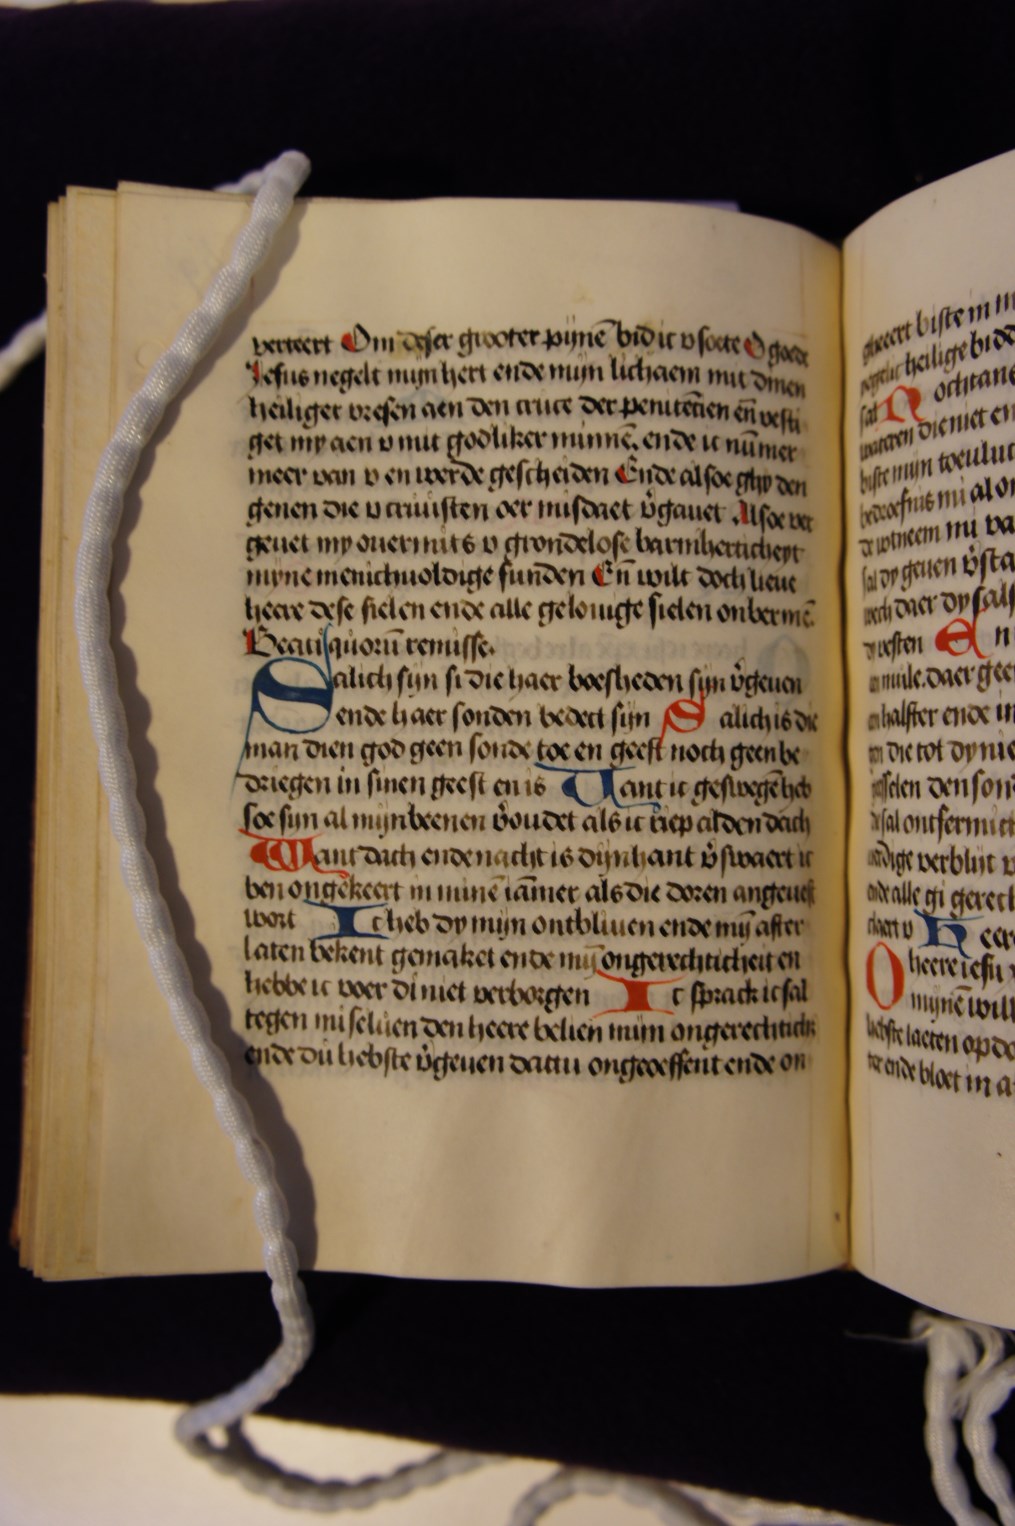 verteert Om deser grooter pijnē bid ic v soete O goede
Jesus negelt mijn hert ende mijn lichaem mit dinen
heiliger vresen aen den cruce der penitēcien en̄ vesti
get my aen v mit godliker minnē. ende ic nūmer
meer van v en werde gescheiden Ende alsoe ghy den
genen die v cruusten oer misdaet v̄gauet Alsoe ver
geuet my ouermits v grondelose barmherticheyt
myne menichuoldige sunden En̄ wilt doch lieue
heere dese sielen ende alle gelouige sielen onbermē
Beati quorū remisse.
Salich sijn si die haer boesheden sijn v̄geuen
ende haer sonden bedect sijn Salich is die
man dien god geen sonde toe en geeft noch geen be
driegen in sinen geest en is Want ic geswegē heb
soe sijn al mijn beenen v̄oudet als ic riep al den dach
Want dach ende nacht is dijn hant v̄swaert ic
ben ongekeert in minē iāmer als die doren angeuest
wort Ic heb dy mijn ontbliuen ende mij̄ after
laten bekent gemaket ende mij̄ ongerechticheit en
hebbe ic voer di niet verborgen Ic sprack ic sal
tegen mi seluen den heere belien mijn ongerechtich
ende du hebste v̄geuen dattu ongeoeffent ende on
biste in
heilige
sal Nochtans
die niet en
biste mijn toeulucht
mi
sal dy geuen
wech daer dy
En
muile. daer geen
halfter ende in
die tot dy nie
den son
sal ontfermic
verblijt
ende alle gi
Heere
O heere iesu
mijnē will
laeten op
ende bloet in